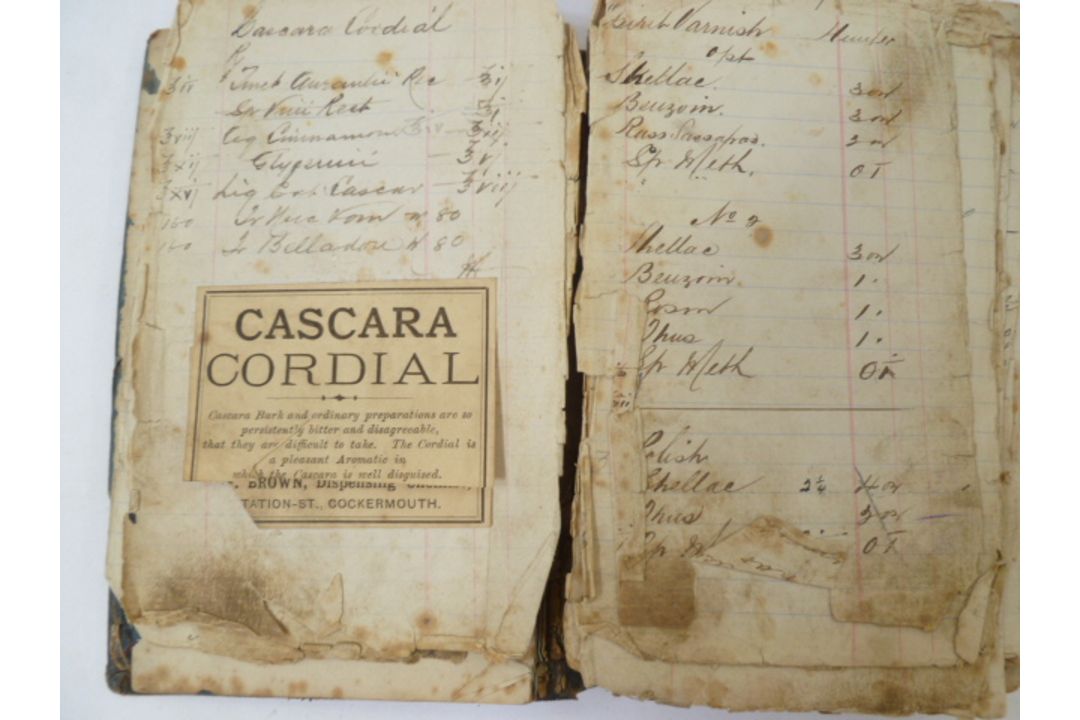 Cascara Cordial
Tinct Aurantii Rec
Sp Vini Rect
Aq Cinnamom
Glycerini
Liq Ext Cascar
Tr Nuc Vom 80
160 Tr Bellad 80
CASCARA
CORDIAL
Cascara Bark and ordinary preparations are so
persistently bitter and disagreeable,
that they are difficult to take. The Cordial is
a pleasant Aromatic in
which the Cascara is well disguised.
BROWN, Dispensing
TATION-ST., COCKERMOUTH.
Varnish
Shellac 3 oz
Benzoin. 3 oz
Sp Meth. O I
No 2
Shellac 3 oz
Benzoin. 1 .
1 .
Thus 1 .
Sp Meth O I
Polish
Shellac 2½ 4 oz
Thus oz
Sp O I